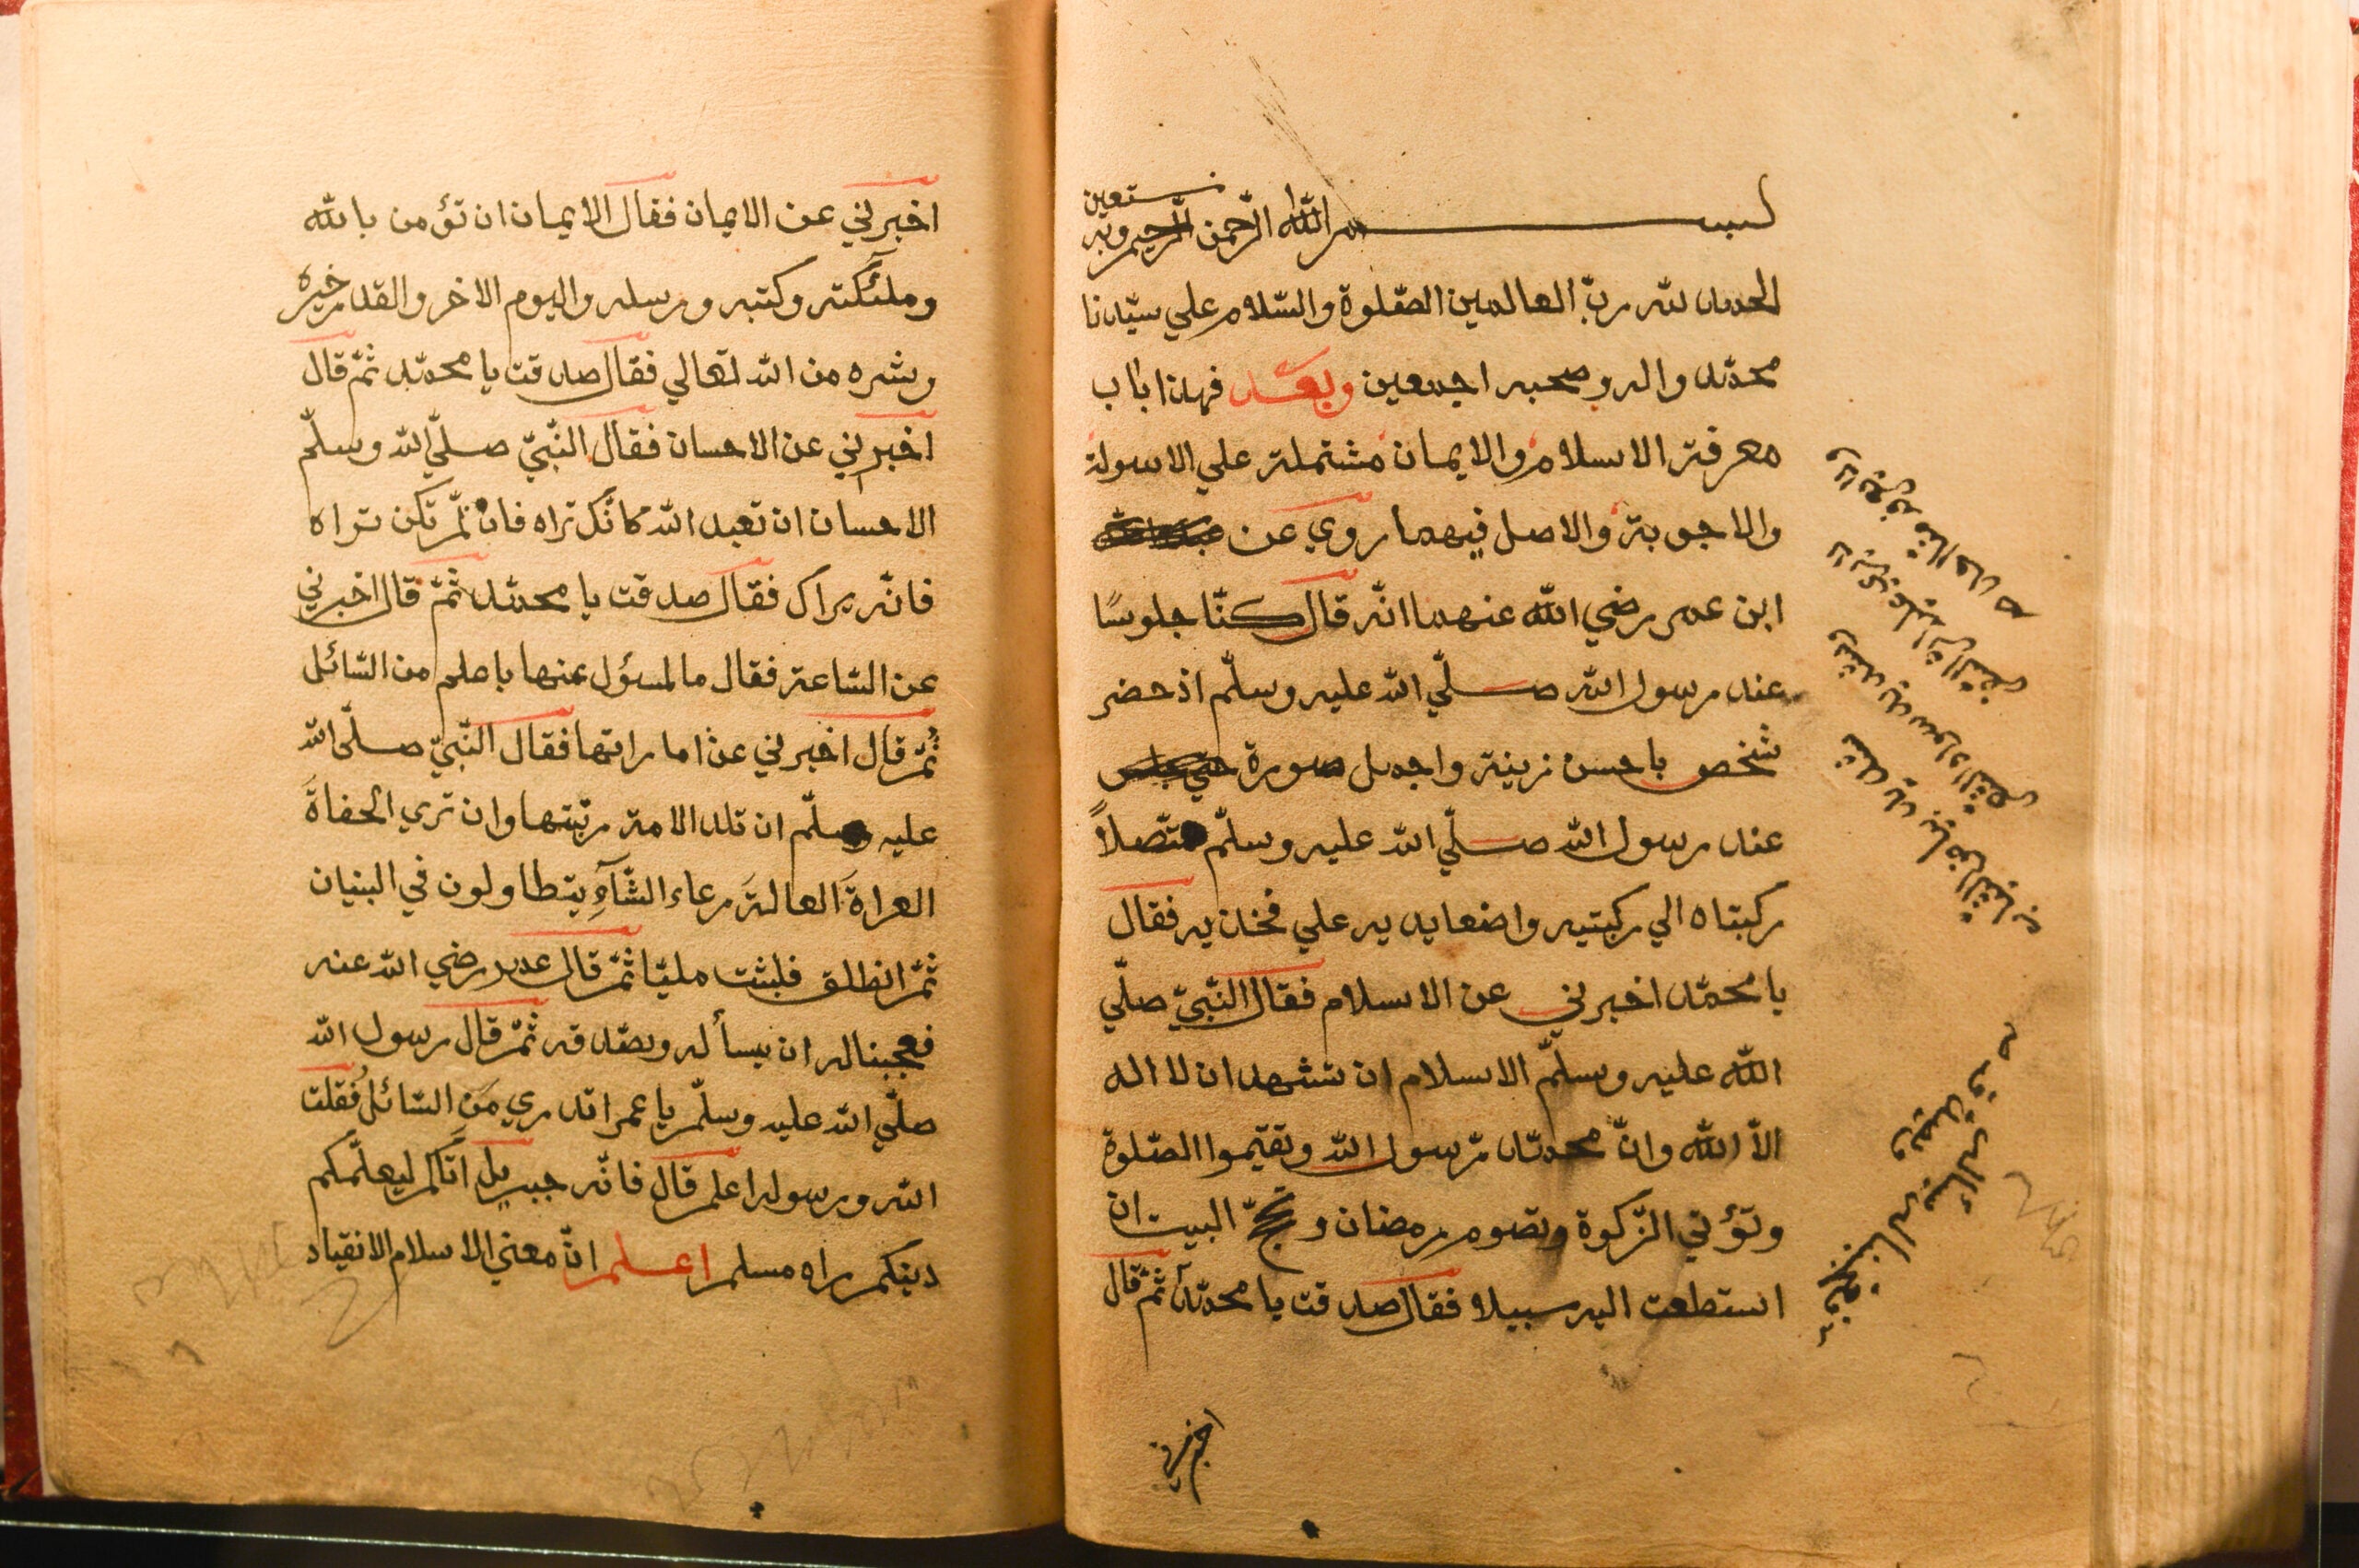 بسم الله الرّحمن الرّحيم وبه نستعين
الحمد لله ربّ العالمين الصّلوة والسّلام علي سيّدنا
محمّد واله وصحبه اجمعين وبعد فهذا باب
معرفة الاسلام والايمان مشتملة علي الاسولة
والاجوبة والاصل فيهما روي عن
ابن عمر رضي الله عنهما انّه قال كنّا جلوسًا
عند رسول الله صلّي الله عليه وسلّم اذ حضر
شخص باحسن زينة واجمل صورة حتي جلس
عند رسول الله صلّي الله عليه وسلّم متّصلاً
ركبتاه الي ركبتيه واضعا يديه علي فخذيه فقال
يا محمّد اخبرني عن الاسلام فقال النّبيّ صلّي
الله عليه وسلّم الاسلام ان تشهد ان لا اله
الاّ الله وانّ محمّد رّسول الله وتقيموا الصّلوة
وتؤتي الزّكوة وتصوم رمضان وتحجّ البيت ان
استطعت اليه سبيلا فقال صدقت يا محمّد ثمّ قال
اخبرني
اخبرني عن الايمان فقال الايمان ان تؤمن بالله
وملئكته وكتبه ورسله واليوم الاخر والقدر خيره
وشره من الله تعالي فقال صدقت يا محمّد ثمّ قال
اخبرني عن الاحسان فقال النّبيّ صلّي الله وسلّم
الاحسان ان تعبد الله كانّك تراه فان لّم تكن تراه
فانّه يراك فقال صدقت يا محمّد ثمّ قال اخبرني
عن السّاعة فقال مالمسؤل عنها باعلم من السّائل
ثمّ قال اخبرني عن اماراتها فقال النّبيّ صلّي الله
عليه وسلّم ان تلد الامة ربّتها وان تري الحفاةَ
العراةَ العالةَ رعاء الشّآءِ يتطاولون في البنيان
ثمّ انطلق فلبثت مليّا ثمّ قال عمر رضي الله عنه
فعجبنا له ان يسأله ويصّدقه ثمّ قال رسول الله
صلّي الله عليه وسلّم يا عمر اتدري مَن السّائلُ فقلت
الله ورسوله اعلم قال فانّه جبريل اتاكم ليعلّمكم
دينكم رواه مسلم اعلم انّ معني الاسلام الانقياد